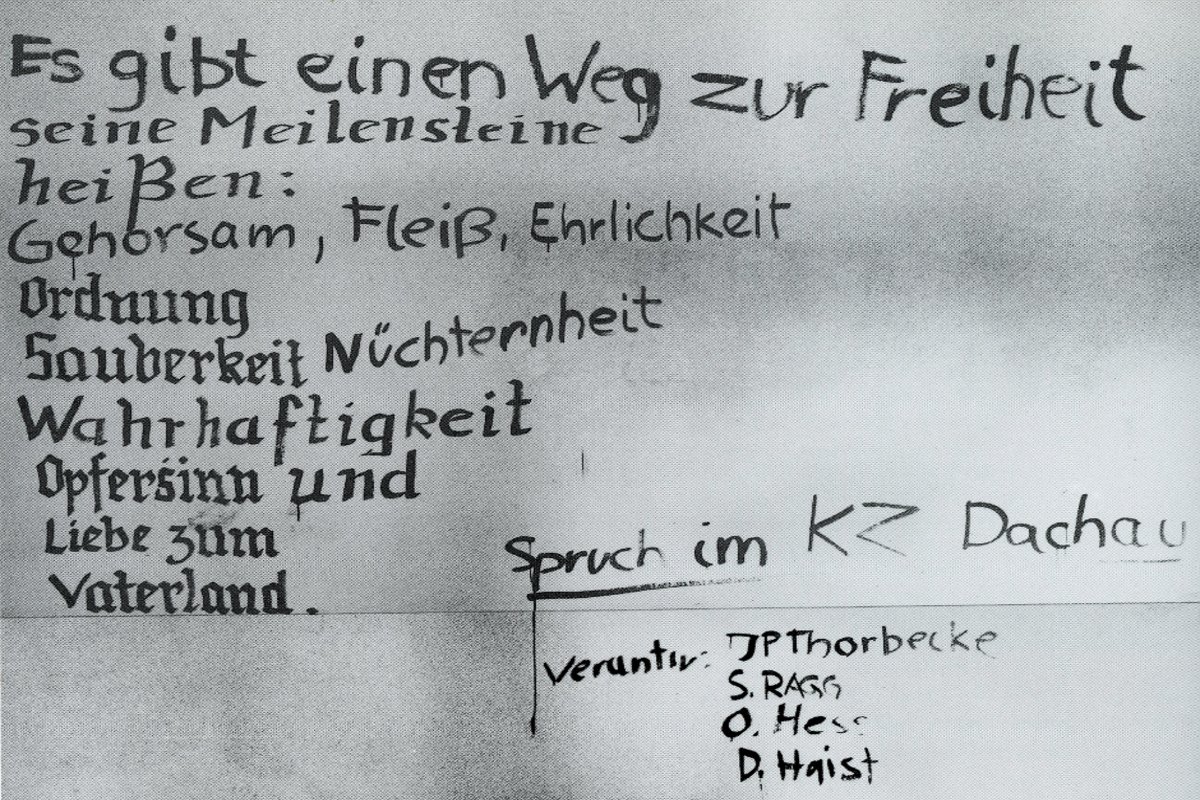 Es gibt einen Weg zur Freiheit
seine Meilensteine
heißen:
Gehorsam, Fleiß, Ehrlichkeit
Ordnung
Sauberkeit Nüchternheit
Wahrhaftigkeit
Opfersinn und
Liebe zum
Vaterland.
Spruch im KZ Dachau
Verantw: JP Thorbecke
S. RAGG
O. Hess
D. Haist